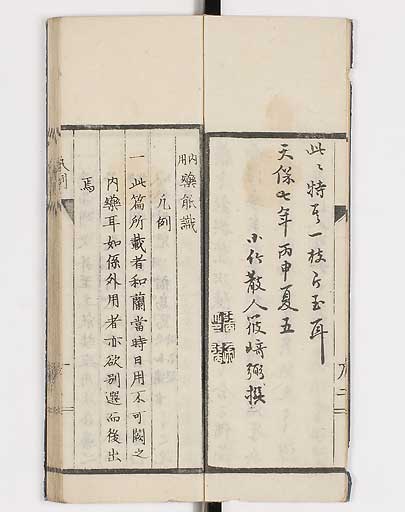 此〻特其一枝片玉耳
天保七年丙申夏五
小竹散人筱﨑弼撰
内用藥能識
凡例
一 此篇所載者和蘭當時日用不可闕之
内藥耳如係外用者亦欲別選而後出
焉
凡例